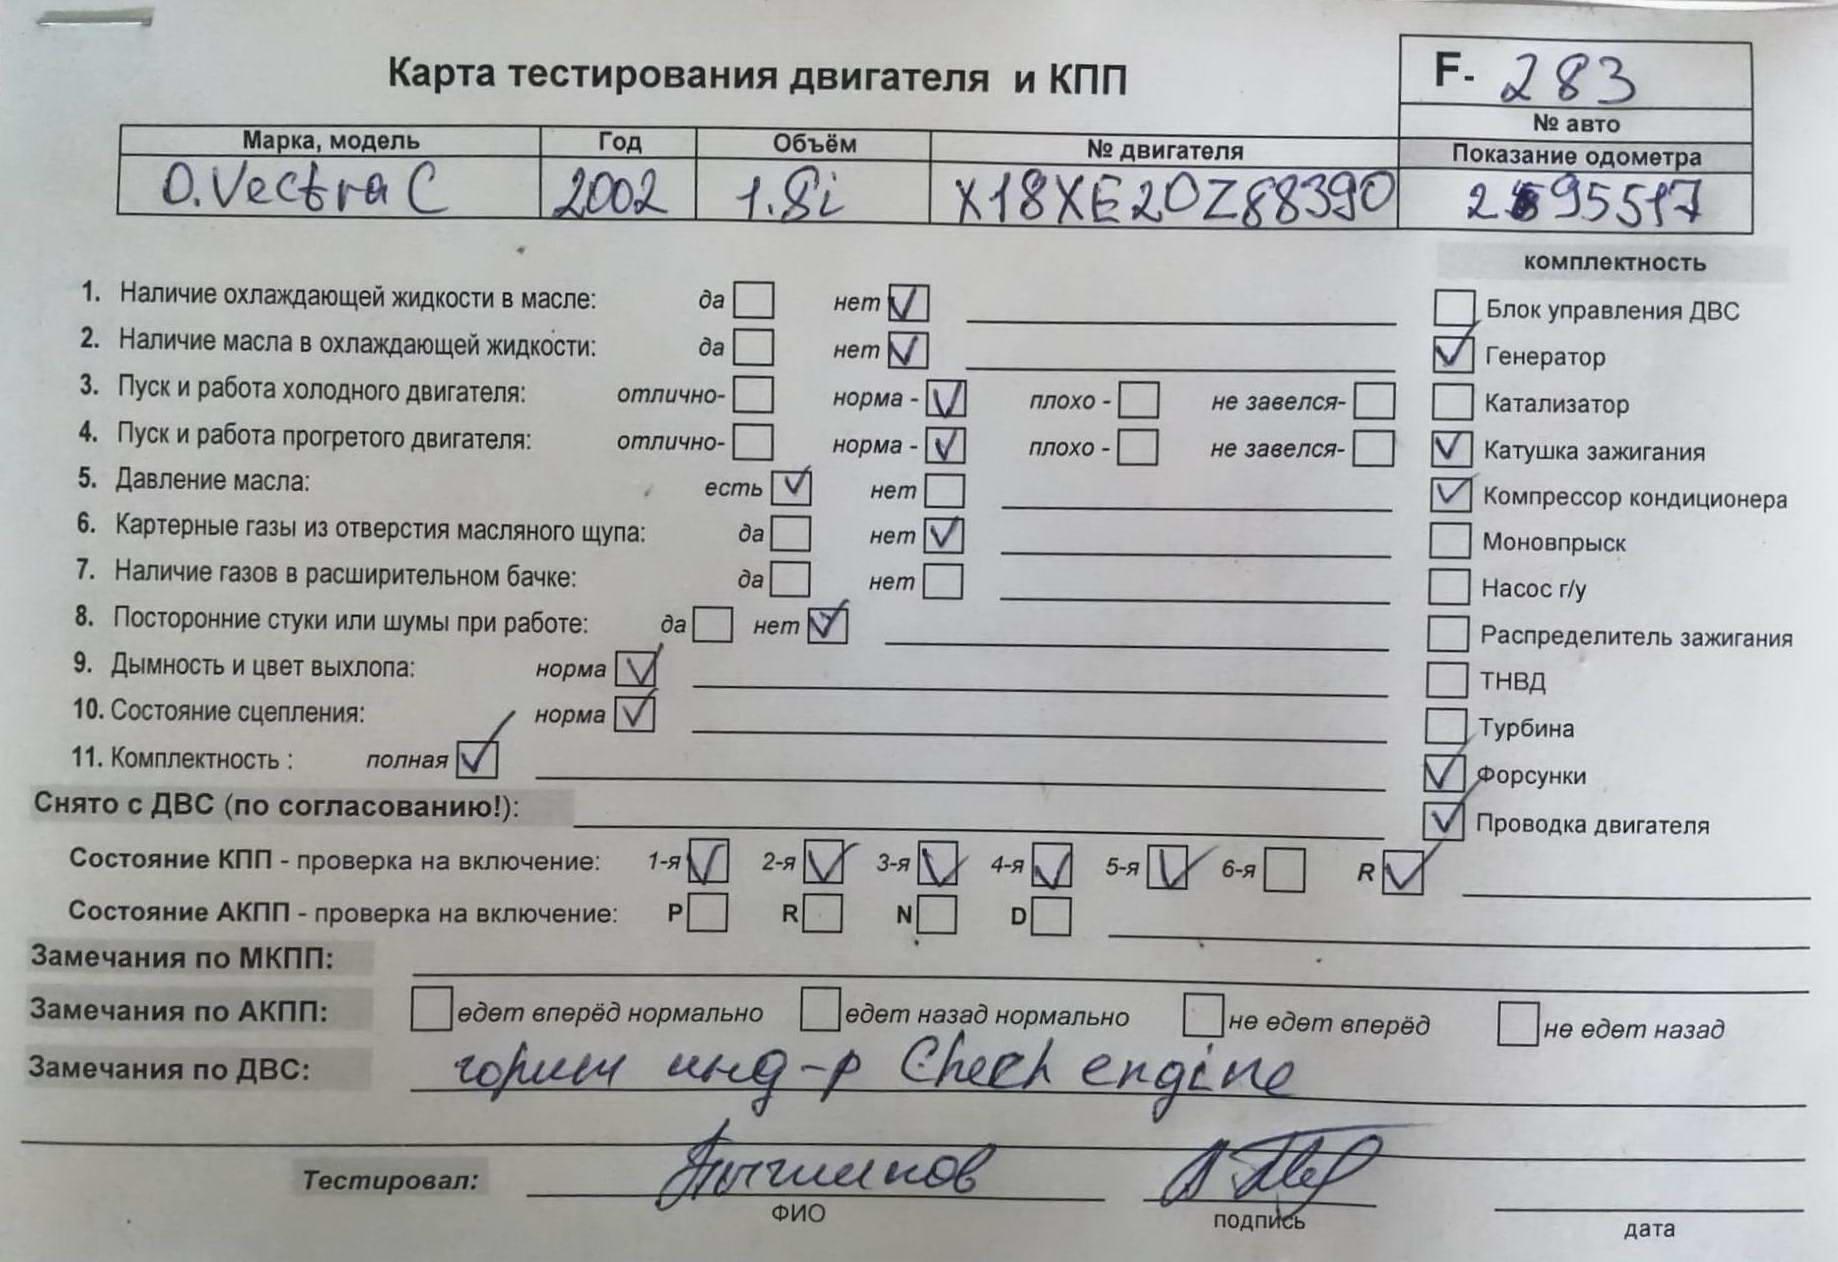 Карта тестирования двигателя и КПП
F- 283
№ авто
Марка, модель Год Объём № двигателя Показание одометра
O.Vectra C 2002 1.8i X18XE20Z88390 295517
комплектность
1. Наличие охлаждающей жидкости в масле: да нет
Блок управления ДВС
2. Наличие масла в охлаждающей жидкости: да нет
Генератор
3. Пуск и работа холодного двигателя: отлично- норма - плохо - не завелся-
Катализатор
4. Пуск и работа прогретого двигателя: отлично- норма - плохо - не завелся-
Катушка зажигания
5. Давление масла: есть нет
Компрессор кондиционера
6. Картерные газы из отверстия масляного щупа: да нет
Моновпрыск
7. Наличие газов в расширительном бачке: да нет
Насос г/у
8. Посторонние стуки или шумы при работе: да нет
Распределитель зажигания
9. Дымность и цвет выхлопа: норма
ТНВД
10. Состояние сцепления: норма
Турбина
11. Комплектность : полная
Форсунки
Снято с ДВС (по согласованию!):
Проводка двигателя
Состояние КПП - проверка на включение: 1-я 2-я 3-я 4-я 5-я 6-я R
Состояние АКПП - проверка на включение: P R N D
Замечания по МКПП:
Замечания по АКПП: едет вперёд нормально едет назад нормально не едет вперёд не едет назад
Замечания по ДВС: горит инд-р Check engine
Тестировал:
ФИО подпись дата